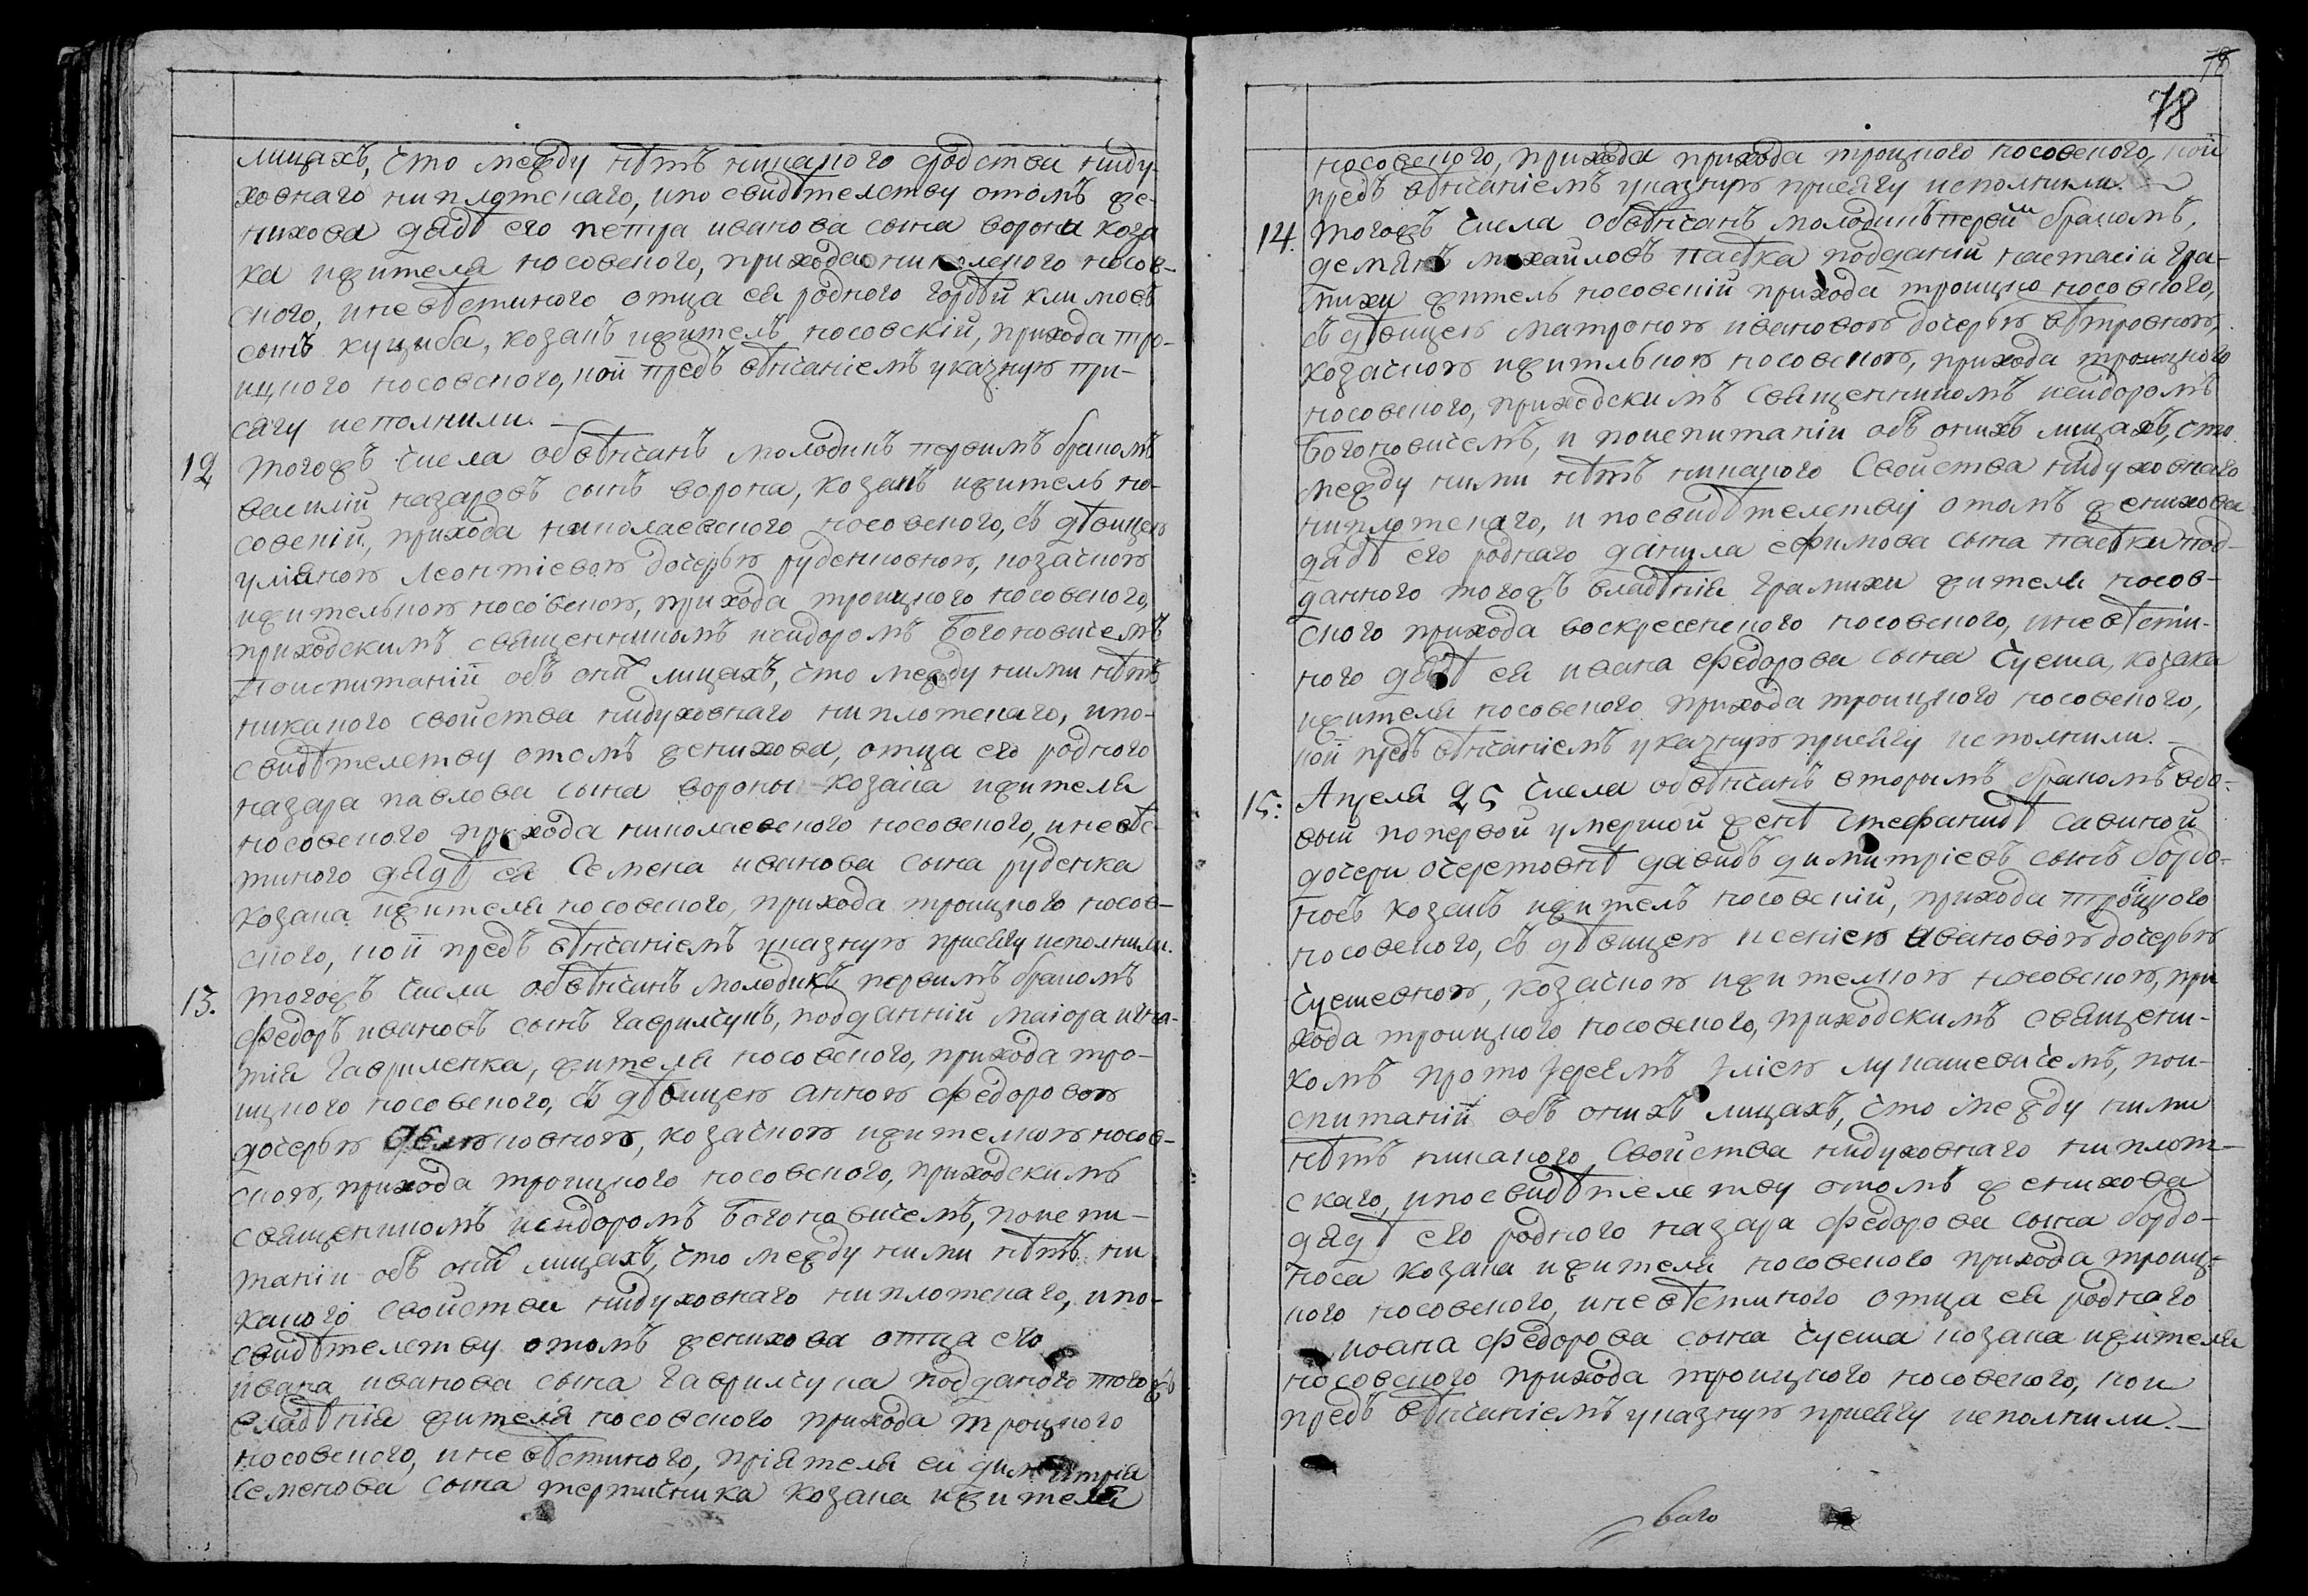 лицахъ, что между нѣтъ никакого сродства ниду-
ховнаго ниплотскаго, ипо свидѣтелству отомъ же-
нихова дядѣ его петра иванова сына ворони коза
ка ижителя носовского, прихода николского носов-
ского, иневѣстиного отца ея родного гордѣй климовъ
сынъ куциба, козакъ ижитель носовскій, прихода тро-
ицкого носовского, кои предъ вѣнчаніемъ указную при-
сягу исполнили.
12 тогожъ числа обвѣнчанъ молодикъ первимъ бракомъ
василій назаровъ сынъ ворона, козакъ ижитель но-
совскій, прихода николаевского носовского, съ дѣвицею
уліяною леонтіевою дочерью руденковною, козачкою
ижителькою носовскою, прихода троицкого носовского,
приходскимъ священникомъ исидоромъ Богоновичемъ
поиспитаніи объ оних лицахъ, что между ними нѣтъ
никакого свойства нидуховнаго ниплотскаго, ипо-
свидѣтелству отомъ женихова, отца его родного
назара павлова сына вороны козака ижителя
носовского прихода николаевского носовского, иневѣс-
тиного дядѣ ея Семена иванова сына руденка
козака ижителя носовского, прихода троицкого носов-
ского, кои предъ вѣнчаніемъ указную присягу исполнили.
13. тогожъ числа обвѣнчанъ молодикъ первимъ бракомъ
федоръ ивановъ сынъ гаврилчукъ, подданній маіора игна-
тія гавриленка, жителя носовского, прихода тро-
ицкого носовского, съ дѣвицею анною федоровою
дочерью, козачкою ижителкою носов-
скою, прихода троицкого носовского, приходскимъ
священникомъ исидоромъ Богоновичемъ, поиспи-
таніи объ оних лицахъ, что между ними нѣтъ ни
какого свойства нидуховнаго ниплотскаго, ипо-
свидѣтелству отомъ женихова отца его
ивана иванова сына гаврилчука подданого тогожъ
владѣнія жителя носовского прихода троицкого
носовского, иневѣстиного, пріятеля ей димитрія
Семенова сына тертичника козака ижителя
78
78
носовского, прихода прихода троицкого носовского, кои
предъ вѣнчаніемъ указную присягу исполнили.
14. тогожъ числа обвѣнчанъ молодикъ первим бракомъ,
демянъ михайловъ пасѣка подданій настасіи гра-
михи житель носовскій прихода троицко носовского,
съ дѣвицею матроною ивановою дочерью вѣтровною,
козачкою ижителькою носовскою, прихода троицкого
носовского, приходскимъ священникомъ исидоромъ
Богоновичемъ, и поиспитаніи объ онихъ лицахъ, что
между ними нѣтъ никакого Свойства нидуховнаго
ниплотскаго, и посвидѣтелству отомъ женихова
дядѣ его роднаго данила ефимова сына пасѣки под-
данного тогожъ владѣнія грамихи жителя носов-
ского прихода воскресенского носовского, иневѣсти-
ного дядѣ ея ивана федорова сына Чуеша, козака
ижителя носовского прихода троицкого носовского,
кои предъ вѣнчаніемъ указную присягу исполнили.
15: Апреля 25 числа обвѣнчанъ вторымъ бракомъ вдо-
вый попервой умершой женѣ стефанидѣ савиной
дочери очеретовнѣ давидъ димитріевъ сынъ бордо-
носъ козакъ ижитель носовскій, прихода троицкого
носовского, съ дѣвицею ксенією ивановою дочерью
Чуешевною, козачкою ижителкою носовскою, при
хода троицкого носовского, приходскимъ священи-
комъ протоіереемъ Іліею лукашевичемъ, пои-
спитаніи объ онихъ лицахъ, что между ними
нѣтъ никакого Свойства нидуховнаго ниплот-
скаго, ипосвидѣтелетву отомъ женихова
дядѣ его родного назара федорова сына бордо-
носа козака ижителя носовского прихода троиц-
кого носовского, иневѣстиного отца ея роднаго
иоана федорова сына чуеша козака ижителя
носовского прихода троицкого носовского, кои
предъ вѣнчаніемъ указную присягу исполнили.